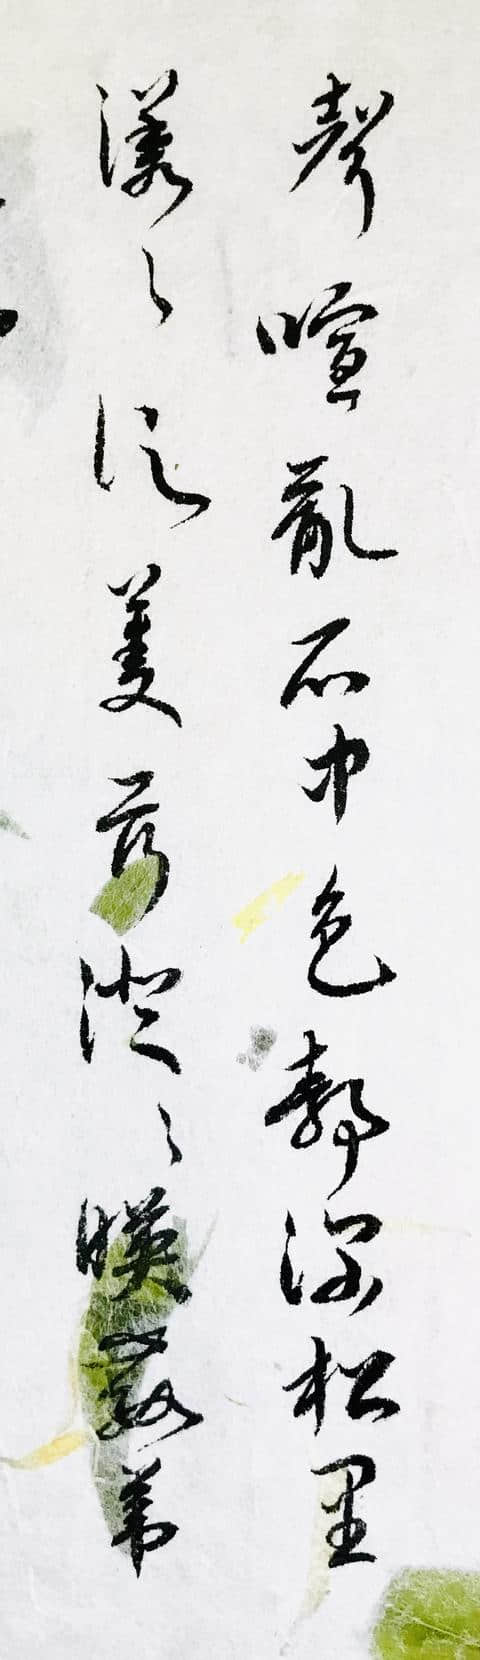 聲喧亂石中色靜深松里
漾々泛菱荇澄々暎葭葦